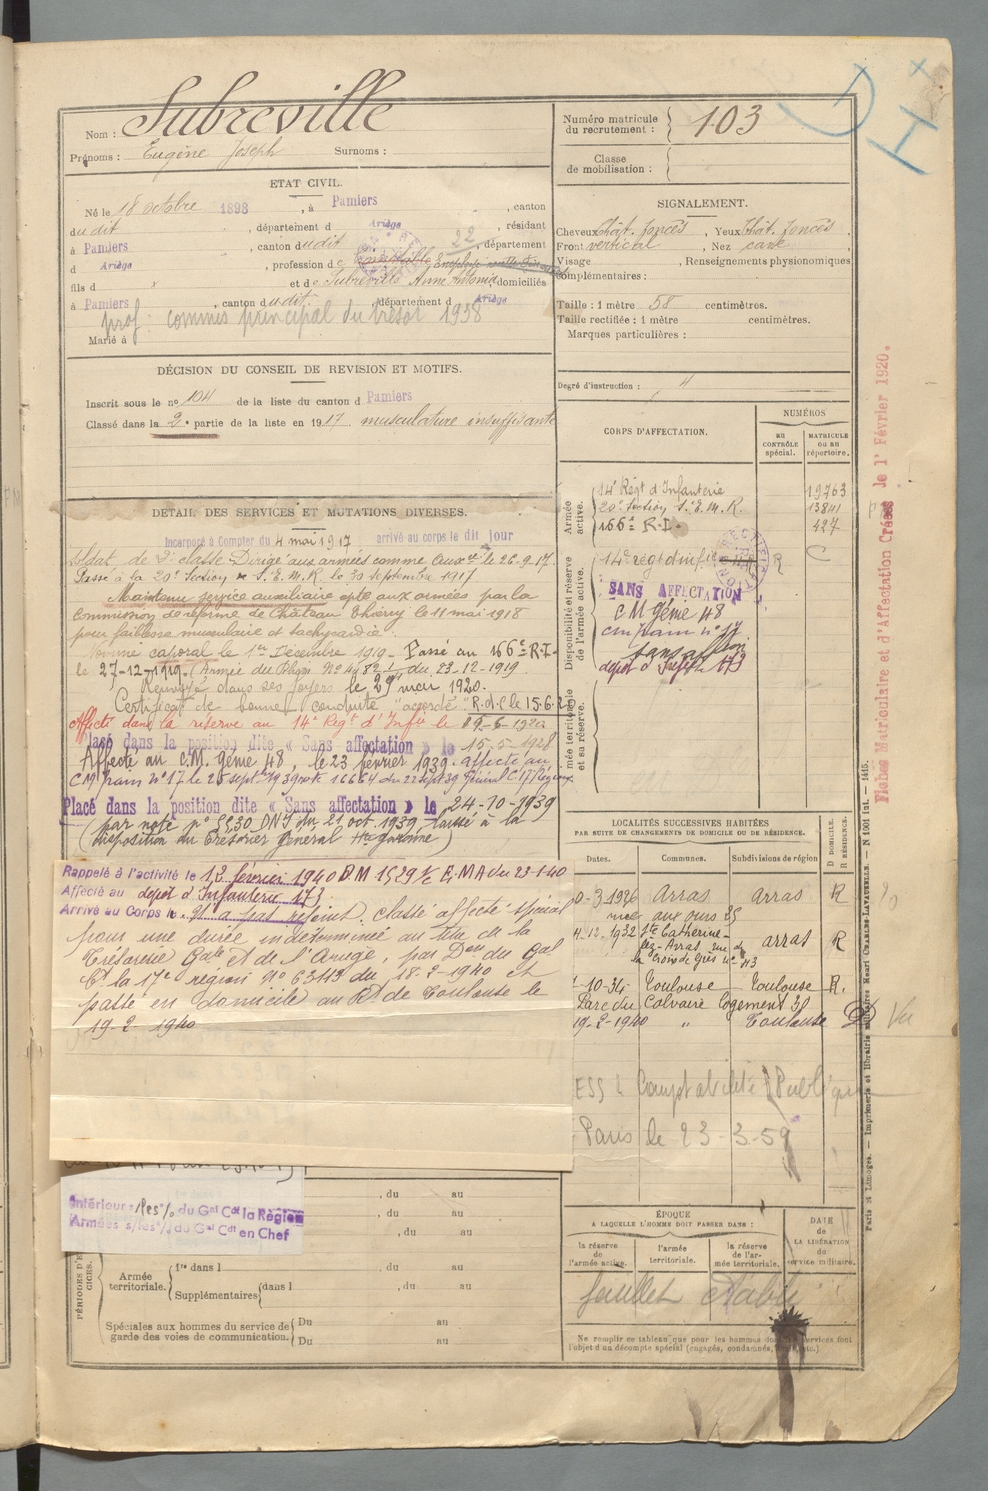 Nom : Subreville
Prénoms : Eugène Joseph Surnoms :
Numéro matricule du recrutement : 103
Classe de mobilisation :
ETAT CIVIL.
Né le 18 octobre 1898, à Pamiers, canton
du dit, département d Ariège, résidant
à Pamiers, canton du dit 22, département
d Ariège, profession de
fils d x et de Subreville Anne Antonia domiciliés
à Pamiers, canton du dit, département d Ariège
prof : commis principal du trésor 1938
Marié à
SIGNALEMENT.
Cheveux Chât. foncés, Yeux Chât. foncés
Front vertical, Nez cave
Visage , Renseignements physionomiques
complémentaires :
Taille : 1 mètre 58 centimètres.
Taille rectifiée : 1 mètre centimètres.
Marques particulières :
Degré d'instruction : 4
DÉCISION DU CONSEIL DE REVISION ET MOTIFS.
Inscrit sous le no 104 de la liste du canton d Pamiers
Classé dans la 2e partie de la liste en 1917 musculature insuffisante
DETAIL DES SERVICES ET MUTATIONS DIVERSES.
Incorporé à Compter du 4 mai 1917 arrivé au corps le dit jour
Soldat de 2e classe Dirigé aux armées comme auxre le 26.9.17.
Passé à la 20e Section S.E.M.R. le 30 septembre 1917
Maintenu service auxiliaire apte aux armées par la
Commission de réforme de Château Thierry le 11 mai 1918
pour faiblesse musculaire et tachycardie.
Nommé caporal le 1er Décembre 1919 - Passé au 166e R.I.
le 27-12-1919. (Armée du Rhin No 4482/1 du 23-12-1919
Renvoyé dans ses foyers le 29 mai 1920.
Certificat de bonne conduite "accordé" R.d.C le 15.6.2
Affecté dans la réserve au 14e Regt d'Infie le 19-6-1920
lacé dans la position dite « Sans affectation » le 15-5-1928
Affecté au C.M. Génie 48, le 23 février 1939. affecté au
Placé dans la position dite « Sans affectation » le 24-10-1939
(par note no 5530 DN/ du 21 oct. 1939, laissé à la
disposition du Trésorier Général Hte Garonne)
Rappelé à l'activité le 12 février 1940 DM 1529 E.M.A du 23-1-40
Affecté au dépot d'Infanterie 173
Arrivé au Corps le N'a pas rejoint, classé affecté spécial
pour une durée indéterminée au titre de la
Trésorerie Gale et de l'Ariège, par Don du Gal
Ct la 17e région No 6311 du 18-2-1940 et
passé en domicile au Rt de Toulouse le
19-2-1940
Intérieur s/les % du Gal Cdt la Région
Armées s/les % du Gal Cdt en Chef
, du au
, du au
, du au
Armée territoriale. 1re dans l , du au
Supplémentaires dans l , du au
Spéciales aux hommes du service de garde des voies de communication. Du au
Du au
CORPS D'AFFECTATION.
NUMÉROS
au CONTRÔLE spécial.
MATRICULE ou au répertoire.
Armée active.
14e Régt d'Infanterie 19763
20e Section S.E.M.R. 13841
166e R.I. 427
Disponibilité et réserve de l'armée active.
14e regt d'infie
SANS AFFECTATION
C M Génie 48
Cm train no 17
sans affon
dépot d'Infrie 173
mée territoriale et sa réserve.
LOCALITÉS SUCCESSIVES HABITÉES
PAR SUITE DE CHANGEMENTS DE DOMICILE OU DE RÉSIDENCE.
Dates. Communes. Subdivisions de région
D DOMICILE. R RÉSIDENCE.
0-3-1926 Arras Arras R
rue aux ours 25
4-12-1932 Ste Catherine-lez-Arras, rue de la Croix de Grès no 43 arras R
1-10-34 Toulouse Toulouse R.
Parc du Calvaire logement 30
19-2-1940 " Toulouse D Vu
ESS Comptabilité Publique
Paris le 23-3-59
ÉPOQUE
A LAQUELLE L'HOMME DOIT PASSER DANS :
la réserve de l'armée active.
l'armée territoriale.
la réserve de l'armée territoriale.
DATE de LA LIBÉRATION du service militaire.
feuillet établi
Ne remplir ce tableau que pour les hommes dont les services font l'objet d'un décompte spécial (engagés, condamnés, etc.)
Fiches Matriculaire et d'Affectation Créées le 1er Février 1920.
Paris et Limoges. — Imprimerie et librairie militaires Henri CHARLES-LAVAUZELLE. — N° 1001 int. — 1415.